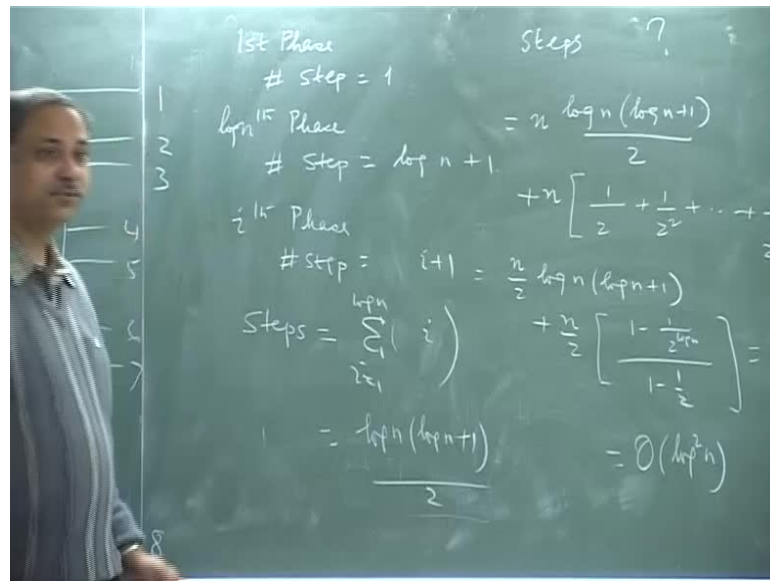 1
2
3
4
5
6
7
8
1st Phase
# Step = 1
log n th Phase
# Step = log n + 1
i th Phase
# Step = i+1
Steps = Σ_{i=1}^{log n} ( i )
= log n (log n + 1) / 2
Steps ?
= n log n (log n + 1) / 2
+ n [ 1/2 + 1/2² + ... +
= n/2 log n (log n + 1)
+ n/2 [ (1 - 1/2^{log n}) / (1 - 1/2) ] =
= O(log² n)